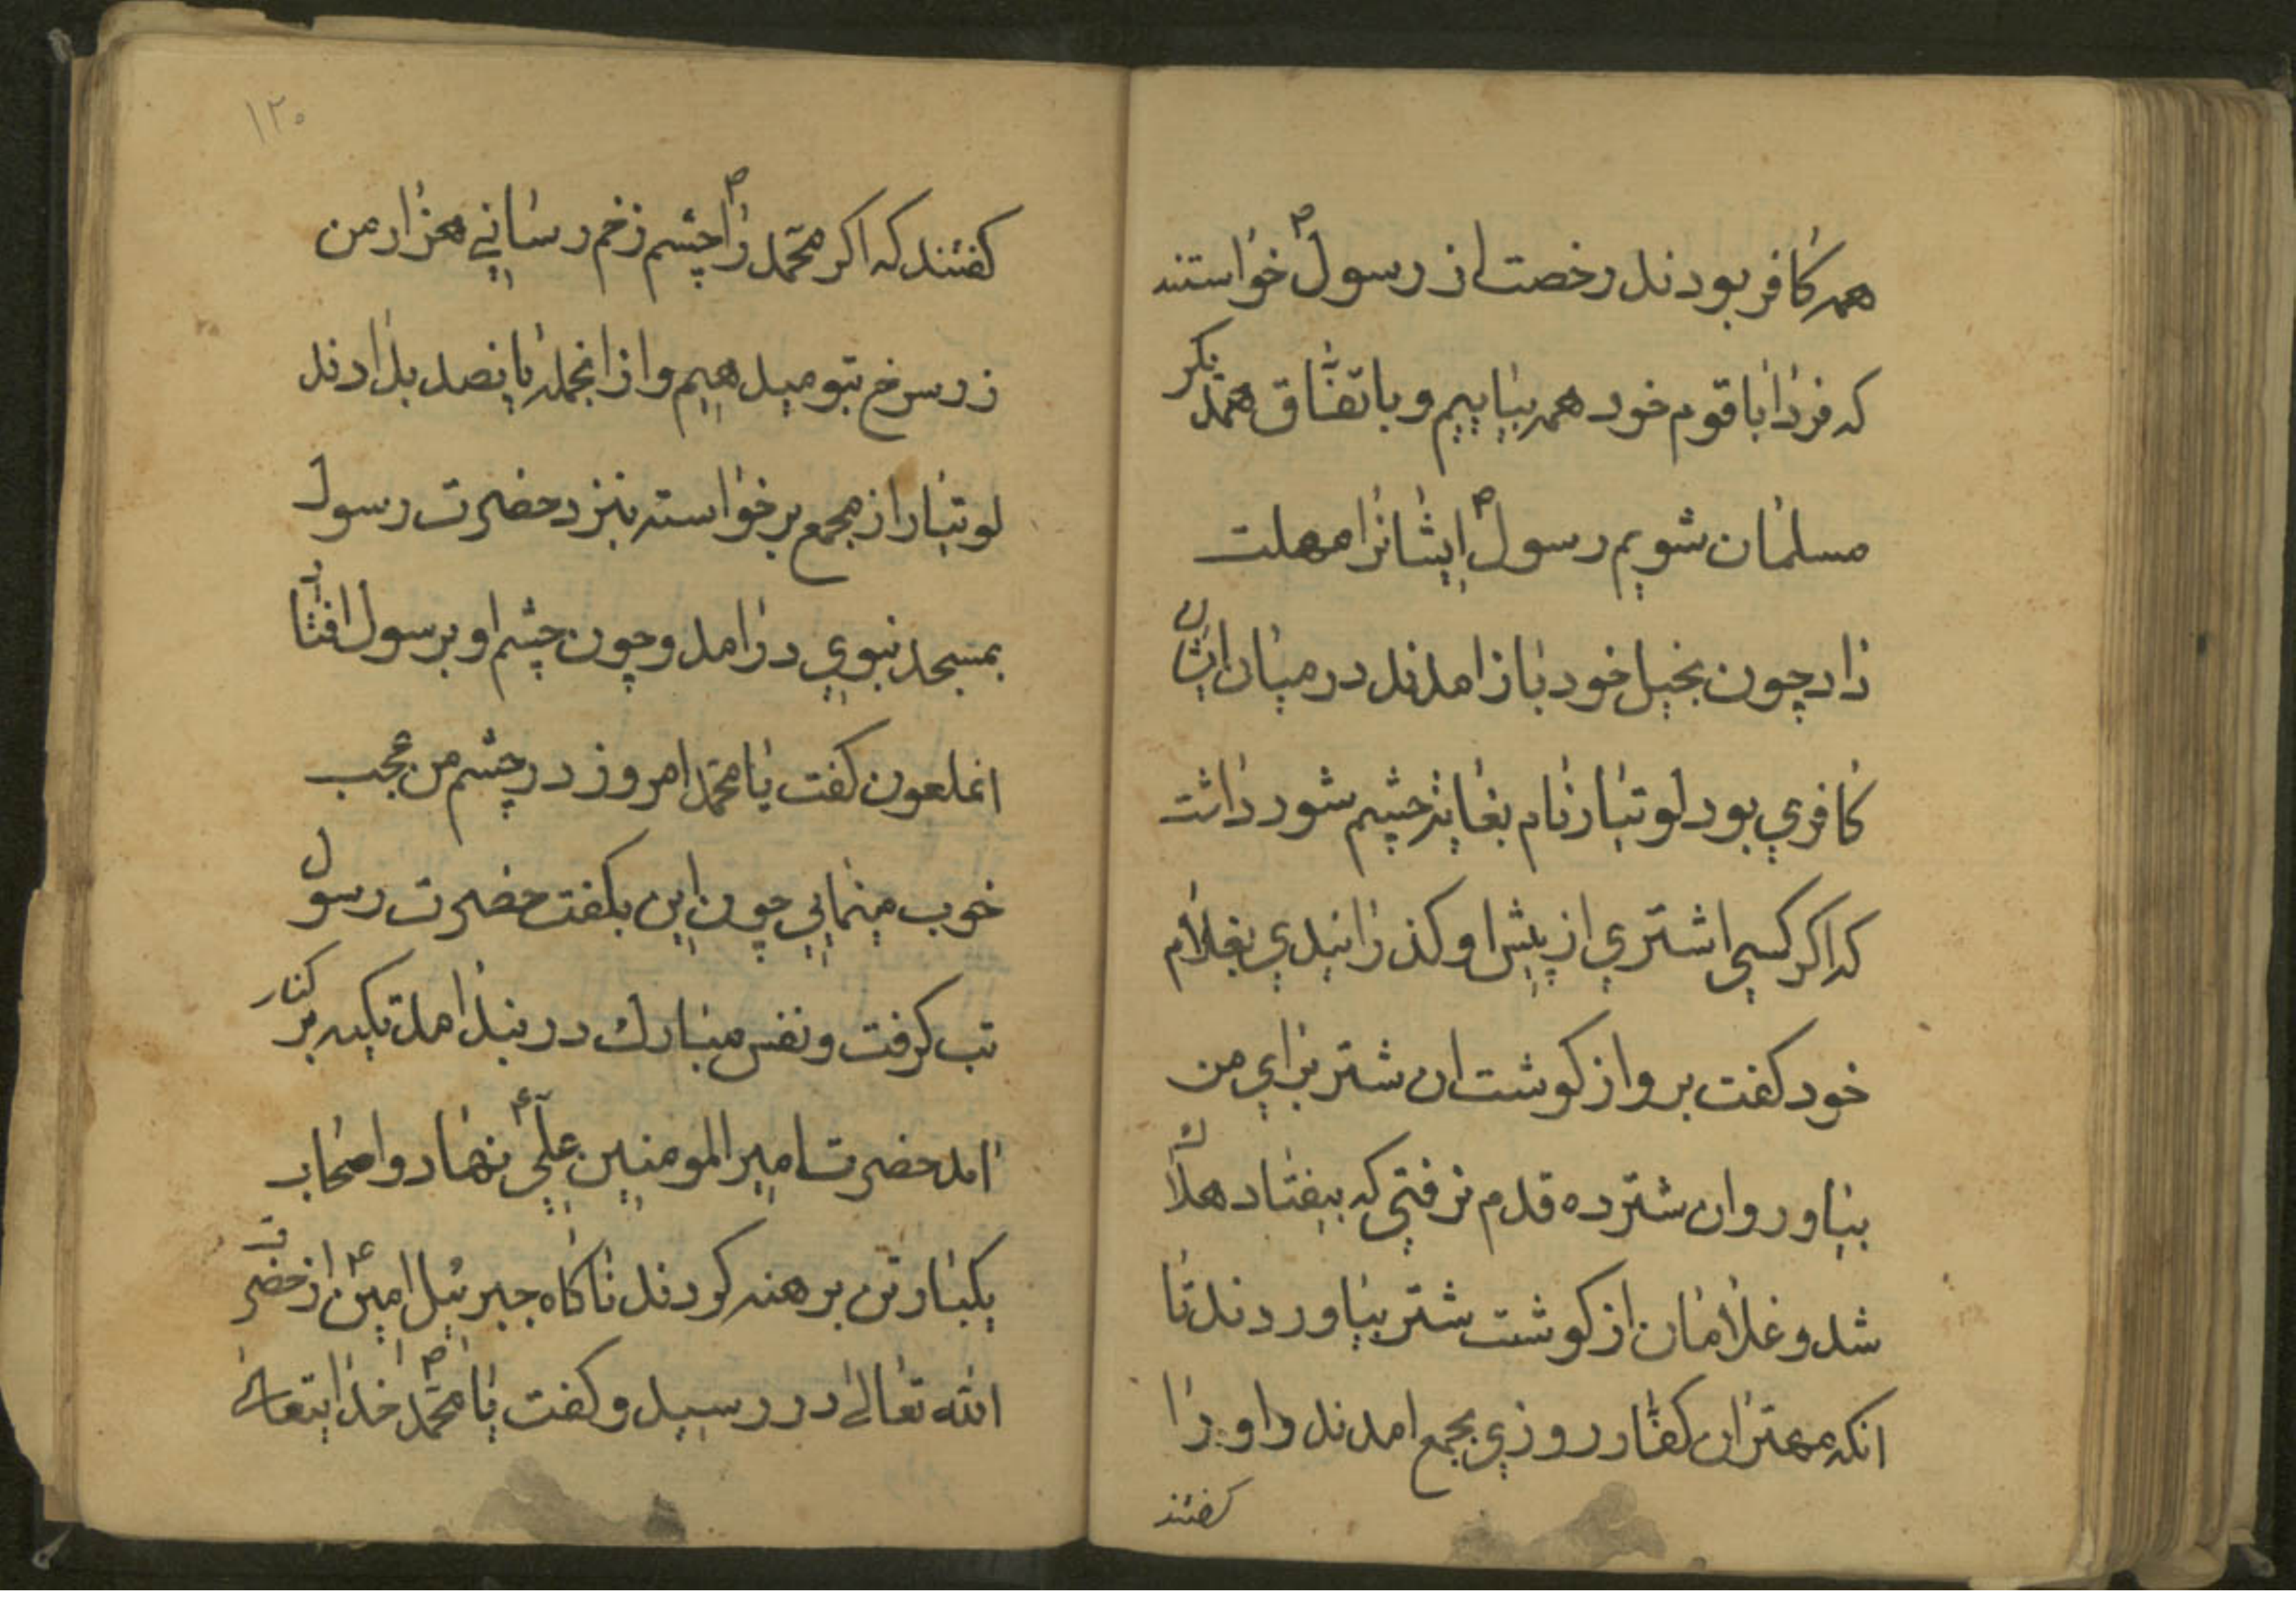 همه کافر بودند رخصت از رسول ص خواستند
که فردا با قوم خود همه بیاییم و باتفاق همدیکر
مسلمان شویم رسول ص ایشانرا مهلت
داد چون بخیل خود باز امدند در میان ایشان
کافری بود لوتبار نام بغایة چشم شور داشت
که اکر کسی اشتری از پیش او کذرانیدی بغلام
خود کفت برو از کوشت ان شتر برای من
بیاور و ان شتر ده قدم نرفتی که بیفتاد هلاک
شد و غلامان از کوشت شتر بیاوردند تا
انکه مهتران کفار روزی بجمع امدند و او را
کفتند
۱۲۰
کفتند که اکر محمد ص را چشم زخم رسانی هزار من
زر سرخ بتو میدهیم و از انجمله پانصد بدادند
لوتبار از مجمع برخواسته بنزد حضرت رسول
بمسجد نبوی درامد و چون چشم او بر رسول افتاد
انملعون کفت یا محمد امروز در چشم من عجب
خوب مینمایی چون این بکفت حضرت رسول
تب کرفت و نفس مبارك در بند امد تکیه بر کنار
امد حضرت امیر المومنین علی ع نهاد و اصحاب
یکبار تن برهنه کردند ناکاه جبرئیل امین ع از حضرت
الله تعالی در رسید و کفت یا محمد ص خدایتعالی